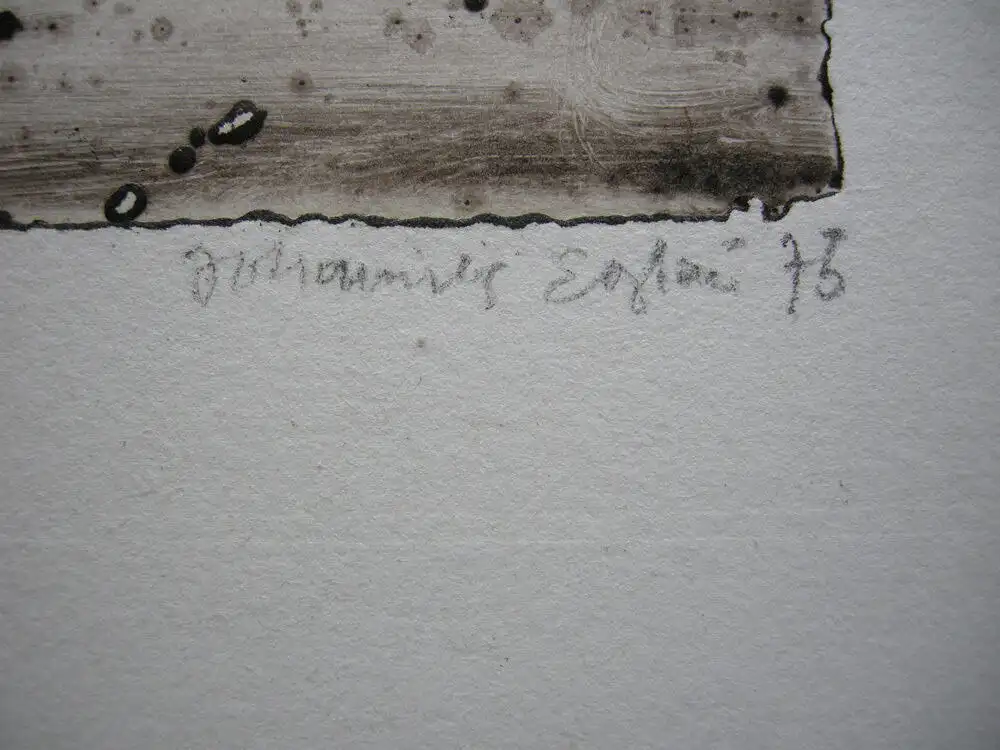 Johannes Eglau